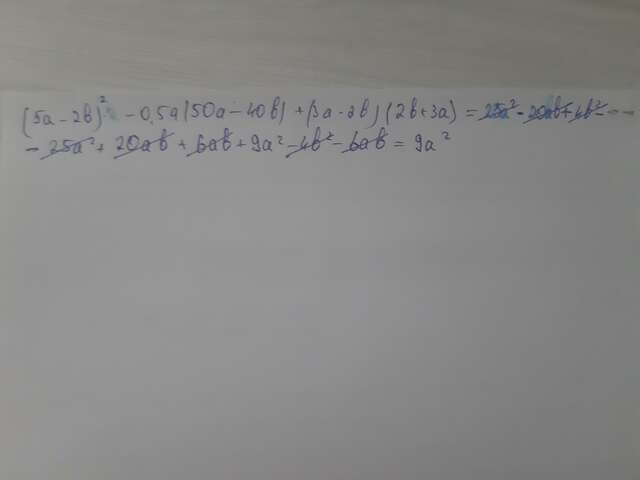 (5a-2b)² - 0,5a(50a-40b) + (3a-2b)(2b+3a) = 25a² - 20ab + 4b² -
- 25a² + 20ab + 6ab + 9a² - 4b² - 6ab = 9a²